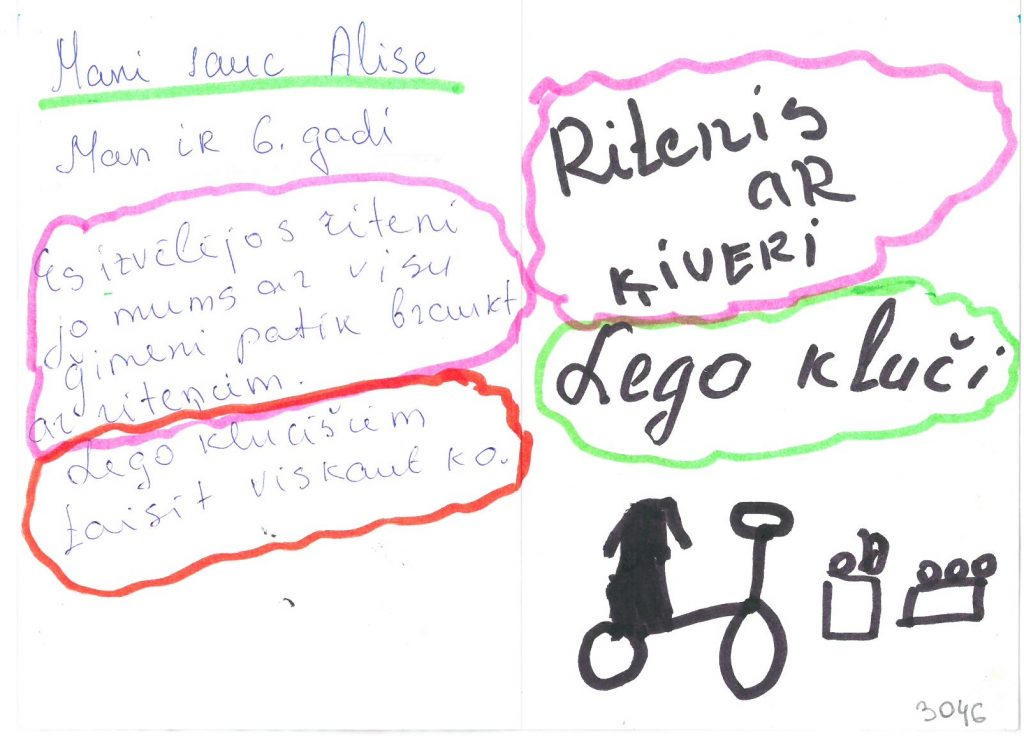 Mani sauc Alise
Man iR 6. gadi
Es izvēlējos riteni
jo mums ar visu
ģimeni patīk braukt
ar riteņcim.
Lego klucišiem
taisit viskaut ko.
Ritenis
aR
ķiveRi
Lego kluči
3046